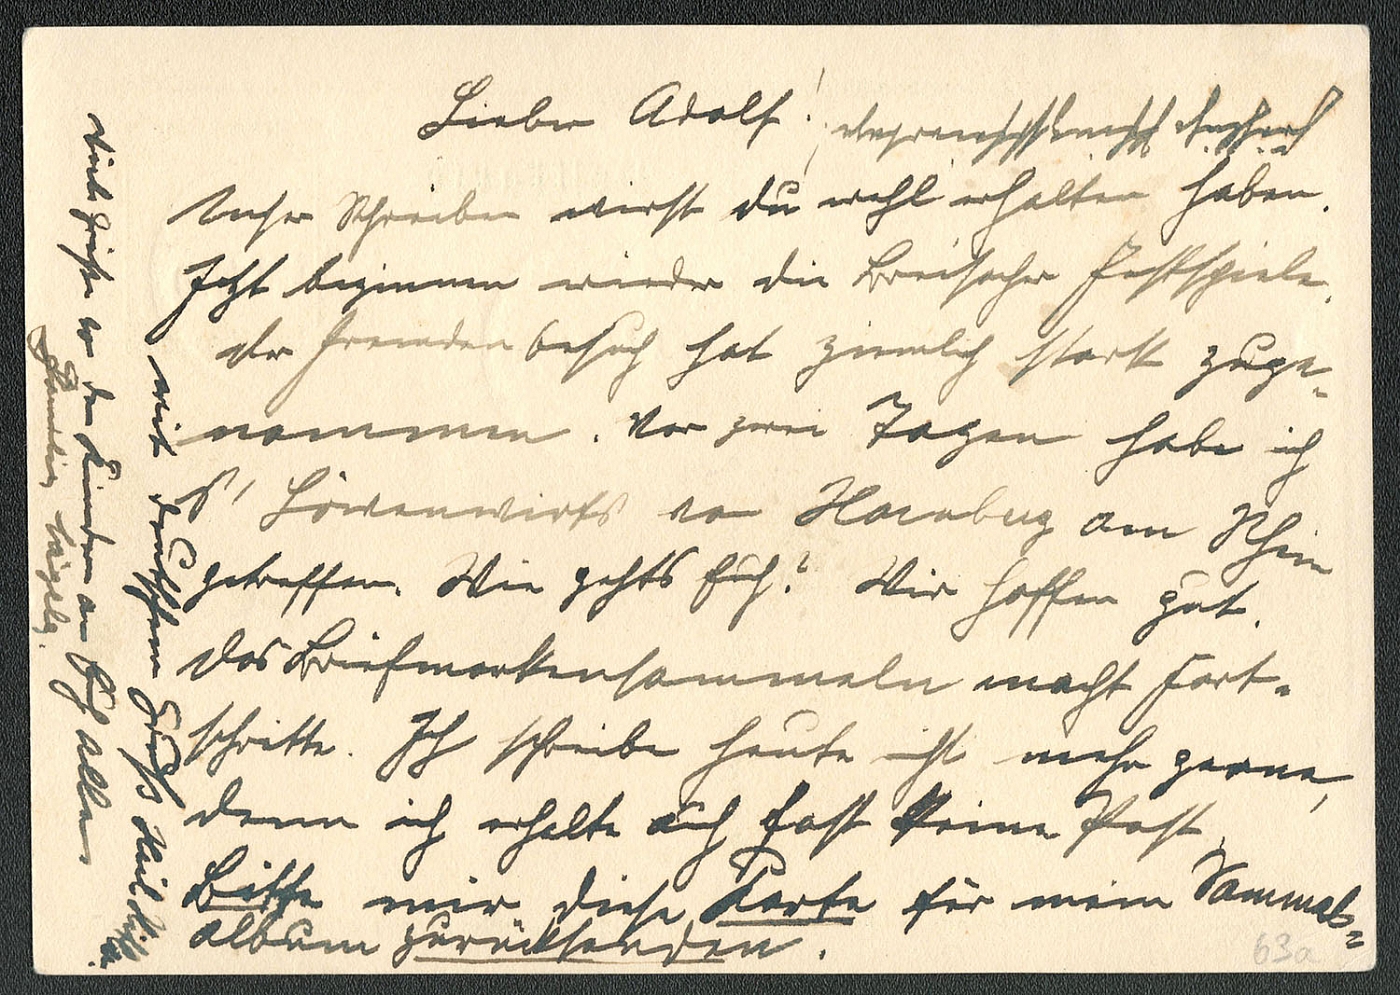 Lieber Adolf!
Unser Schreiben wirst du wohl erhalten haben.
Jetzt beginnen wieder die Breisacher Festspiele.
der Fremdenbesuch hat ziemlich stark zuge-
nommen. Vor zwei Tagen habe ich
s' Löwenwirts von Hornberg am Rhein
getroffen. Wie gehts Euch? Wir hoffen gut.
Das Briefmarkensammeln macht Fort-
schritte. Ich schreibe heute nicht mehr gerne,
denn ich erhalte auch fast keine Post.
Bitte mir diese Karte für mein Sammel-
album zurücksenden.
mit deutschem Gruß Heil Hitler.
Viele Grüße v. den Kindern an Euch alle
Familie
63a